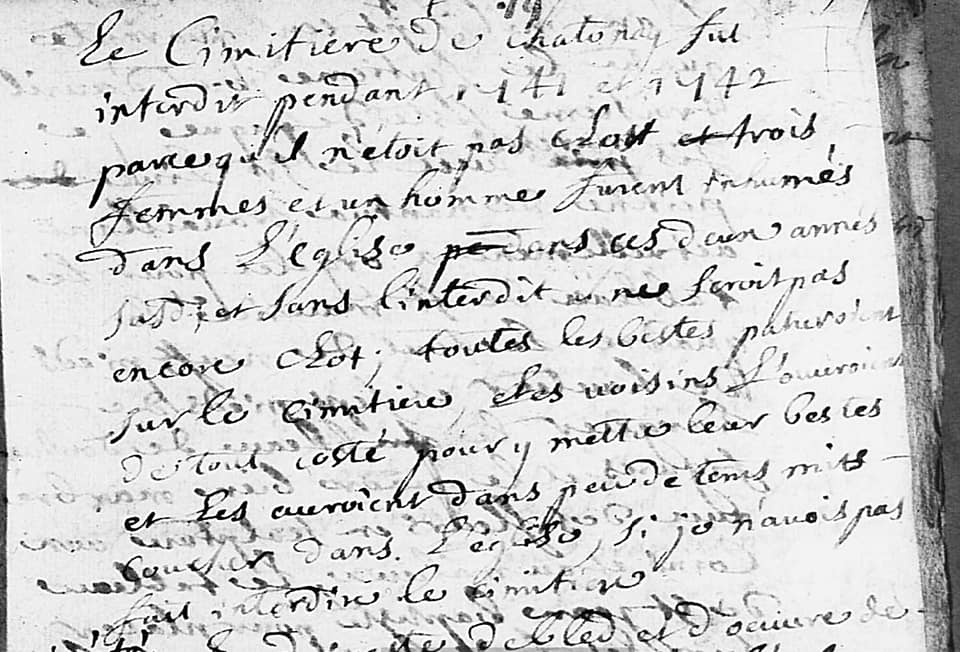 Le Cimitiere de chatonay fut
interdit pendant 1741 et 1742
parce qu'il n'etoit pas clott et trois
femmes et un homme furent inhumés
dans l'eglise pendens ces deux annés
susd, et sans l'interdit ne seroit pas
encore clot; toutes les bestes patureroient
sur le cimitiere, et les voisins l'ouvroient
de tout costé pour y mettre leur bestes
et les auroient dans peu de tems mits
coucher dans l'eglise, si je n'avois pas
fait interdire le cimitiere
de bled et d'oeuvre de